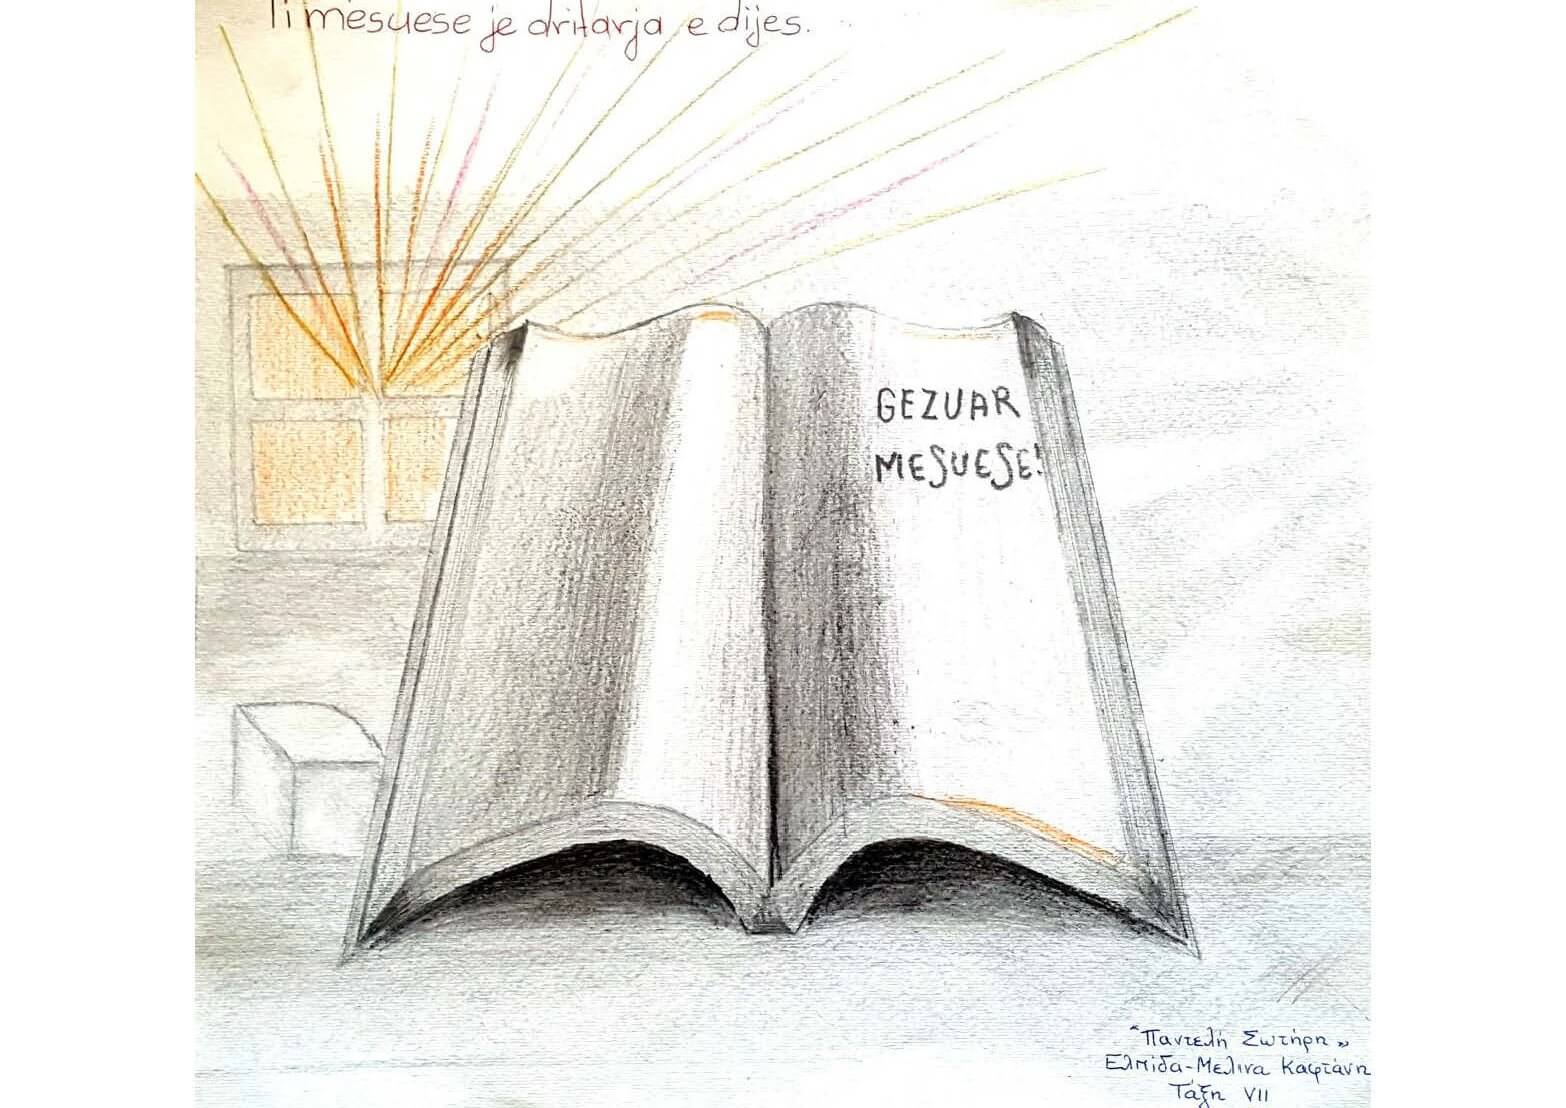 Ti mësuese je dritarja e dijes.
GEZUAR
MESUESE!
"Παντελή Σωτήρη"
Ελπίδα-Μελινα Καφτάνη
Τάξη VII